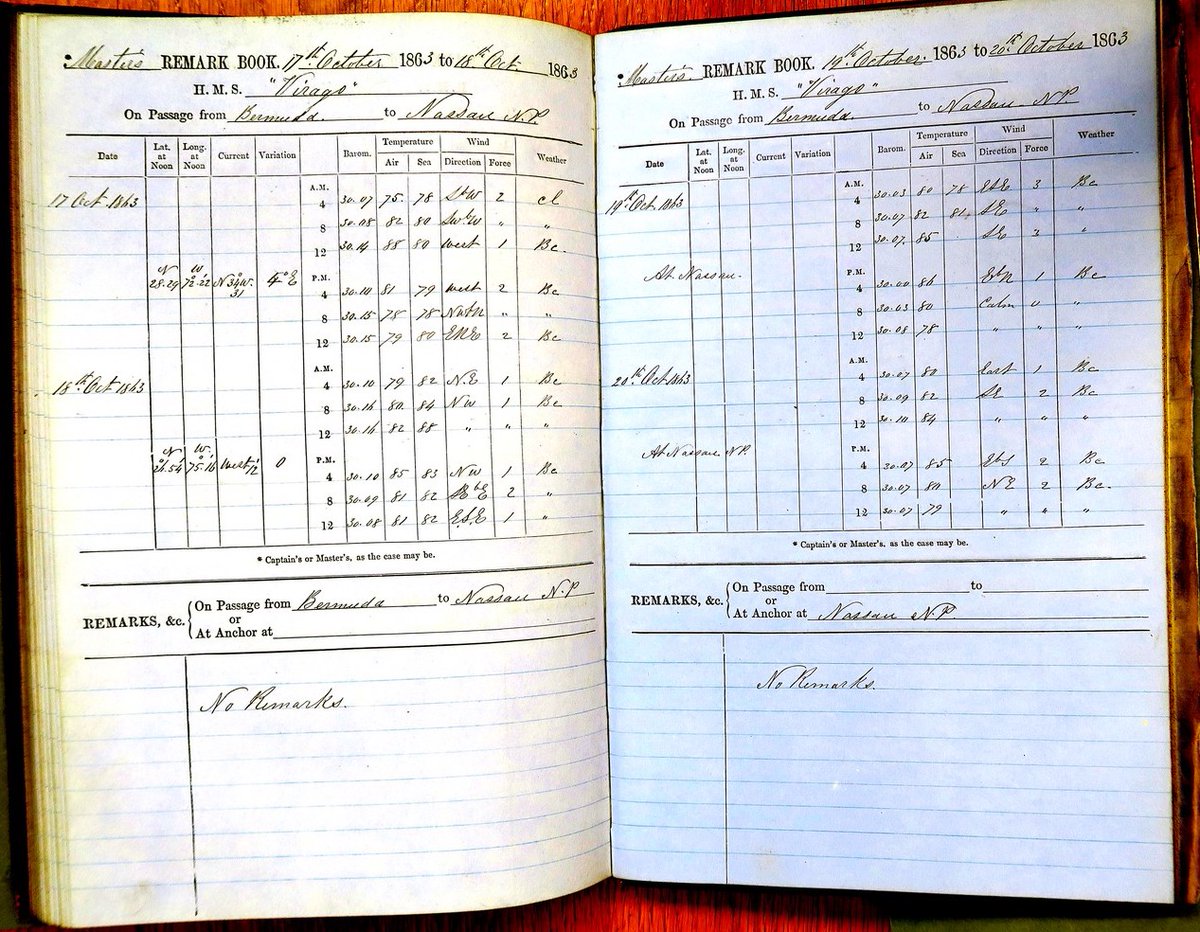 * Master's REMARK BOOK. 17th October 1863 to 18th Oct. 1863
H. M. S. "Virago"
On Passage from Bermuda. to Nassau N.P.
Date Lat. at Noon Long. at Noon Current Variation Barom. Temperature Air Sea Wind Direction Force Weather
17 Oct 1863 A.M. 4 30.07 75. 78 SbW 2 cl
8 30.08 82 80 SWbW " "
12 30.14 88 80 West 1 Bc.
N 28.29 W 72.22 N 34° W. 31 4° E P.M. 4 30.10 81 79 West 2 Bc
8 30.15 78 78 " "
12 30.15 79 80 ENE 2 Bc
18th Oct 1863 A.M. 4 30.10 79 82 N.E 1 Bc
8 30.16 80. 84 NW 1 Bc
12 30.16 82 88 " " "
N 26°.54' W. 75°.16' West 12' 0 P.M. 4 30.10 85 83 NW 1 Bc
8 30.09 81 82 2 "
12 30.08 81 82 E.S.E 1 "
* Captain's or Master's, as the case may be.
REMARKS, &c. On Passage from Bermuda to Nassau N.P
or
At Anchor at
No Remarks.
* Master's. REMARK BOOK. 19th October. 1863 to 20th October 1863
H. M. S. "Virago"
On Passage from Bermuda. to Nassau N.P.
Date Lat. at Noon Long. at Noon Current Variation Barom. Temperature Air Sea Wind Direction Force Weather
19th Oct. 1863 A.M. 4 30.03 80 78 ESE 3 Bc
8 30.07 82 81 SE " "
12 30.07. 85 SE 3 "
At Nassau. P.M. 4 30.00 86 EbN 1 Bc
8 30.03 80 Calm 0 "
12 30.08 78 " " "
20th Oct 1863 A.M. 4 30.07 80 East 1 Bc
8 30.09 82 SE 2 Bc
12 30.10 84 " " "
At Nassau N.P. P.M. 4 30.07 85 EbS 2 Bc
8 30.07 80 N.E 2 Bc.
12 30.07 79 " " "
* Captain's or Master's, as the case may be.
REMARKS, &c. On Passage from to
or
At Anchor at Nassau N.P.
No Remarks.